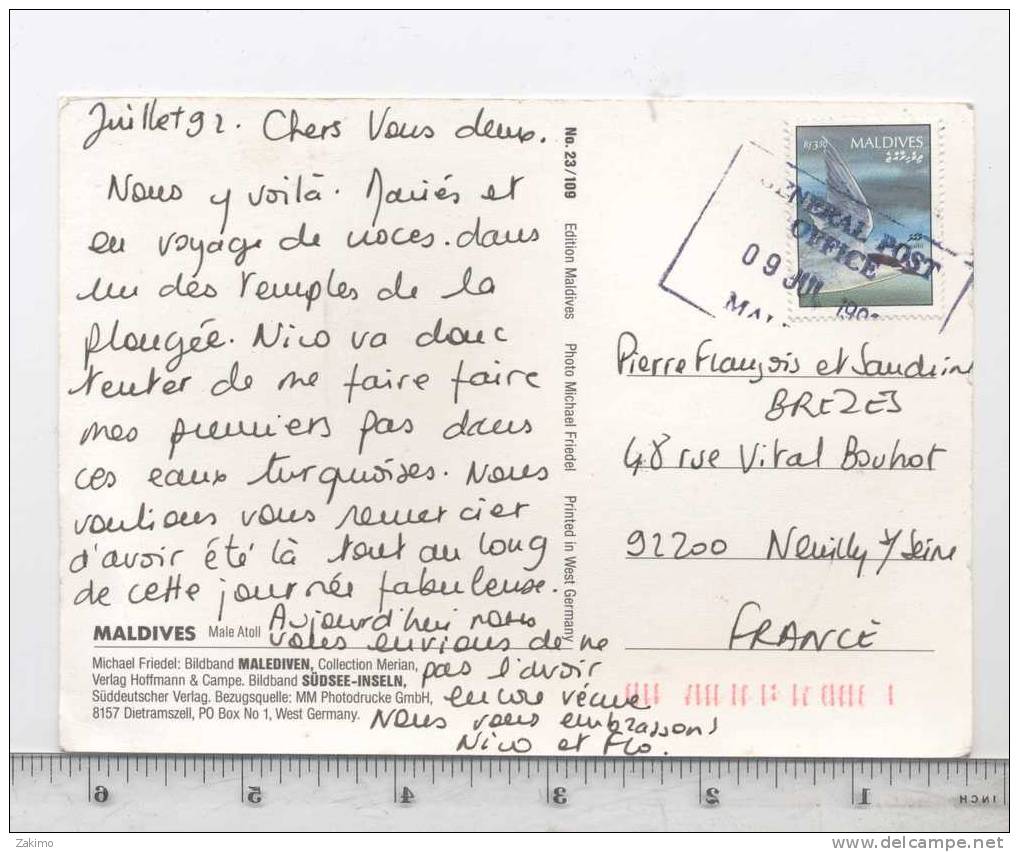 Juillet 92. Chers Vous deux.
Nous y voilà. Mariés et
en voyage de noces. dans
un des temples de la
plongée. Nico va donc
tenter de me faire faire
mes premiers pas dans
ces eaux turquoises. Nous
voulions vous remercier
d'avoir été là tout au long
de cette journée fabuleuse.
Aujourd'hui nous
vous envions de ne
pas l'avoir
encore vécue
Nous vous embrassons
Nico et Flo.
MALDIVES Male Atoll
Michael Friedel: Bildband MALEDIVEN, Collection Merian,
Verlag Hoffmann & Campe. Bildband SÜDSEE-INSELN,
Süddeutscher Verlag. Bezugsquelle: MM Photodrucke GmbH,
8157 Dietramszell, PO Box No 1, West Germany.
No. 23/109 Edition Maldives Photo Michael Friedel Printed in West Germany
MALDIVES
GENERAL POST
OFFICE
09 JUL 199
Pierre François et Sandrine
BREZES
48 rue Vital Bouhot
92200 Neuilly s/Seine
FRANCE
6 5 4 3 2 1
INCH
Zakimo
www.delcampe.net